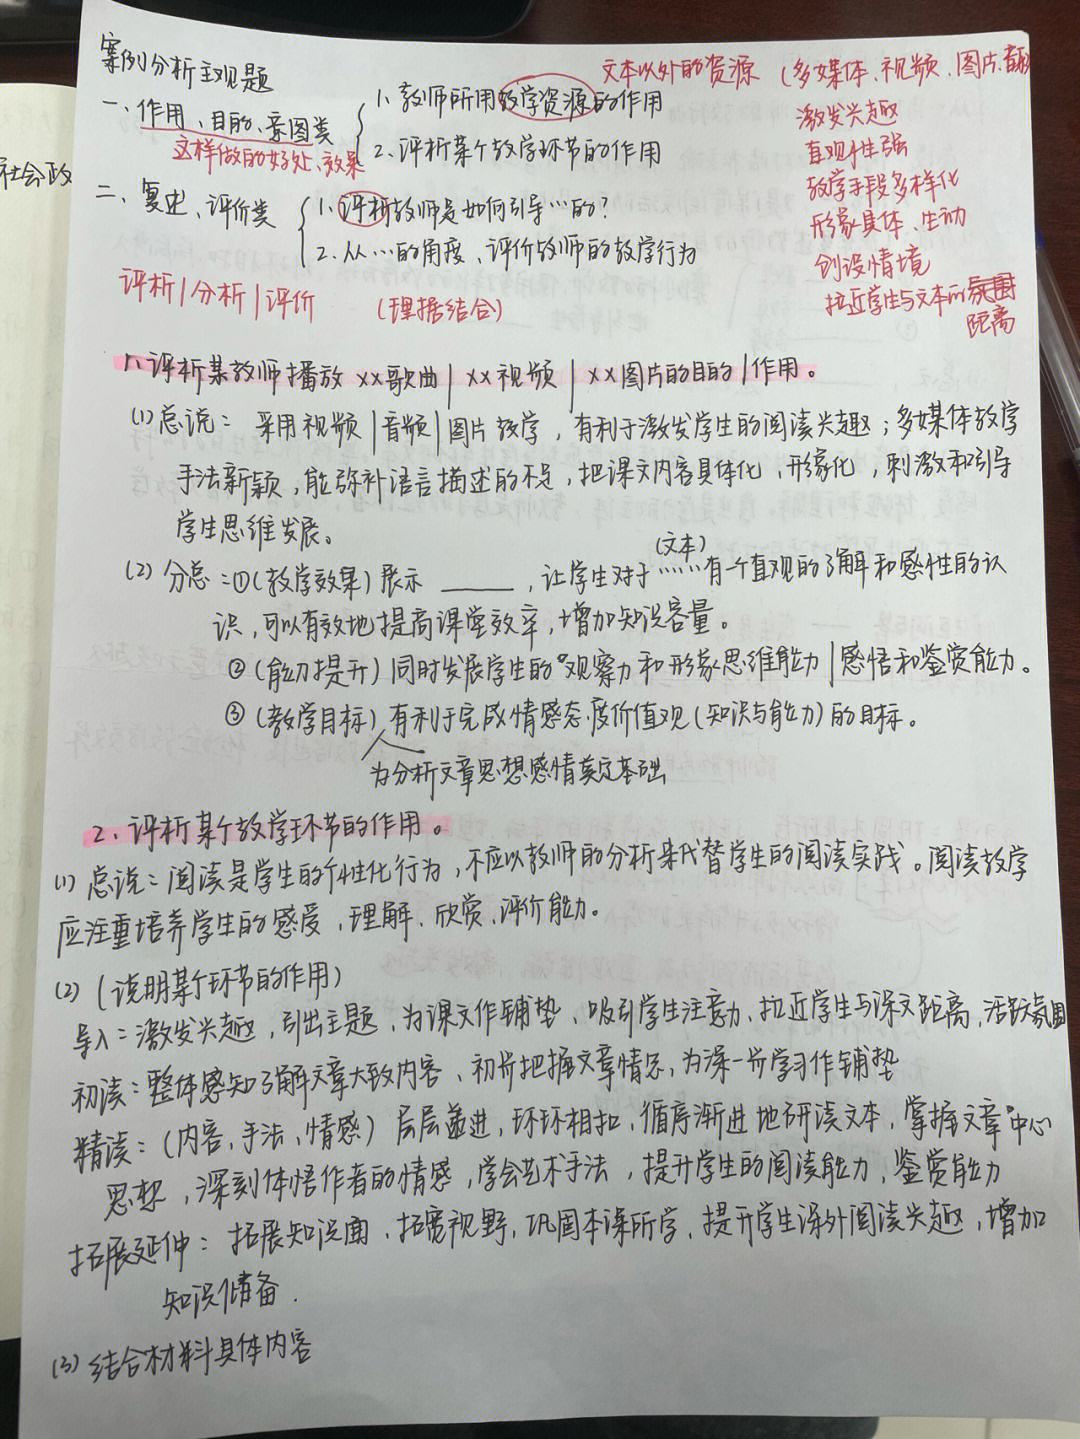 案例分析主观题
文本以外的资源 (多媒体、视频、图片、音频
一、作用、目的、意图类
这样做的好处、效果
1. 教师所用教学资源的作用
2. 评析某个教学环节的作用
激发兴趣
直观性强
教学手段多样化
形象具体、生动
创设情境
拉近学生与文本的氛围
距离
社会政
二、复述、评价类
1. 评析教师是如何引导…的?
2. 从…的角度、评价教师的教学行为
评析|分析|评价 (理据结合)
1. 评析某教师播放 xx歌曲| xx视频| xx图片的目的|作用。
(1) 总说: 采用视频|音频|图片教学, 有利于激发学生的阅读兴趣; 多媒体教学
手法新颖, 能弥补语言描述的不足, 把课文内容具体化、形象化, 刺激和引导
学生思维发展。
(2) 分总: ①(教学效果) 展示____, 让学生对于……(文本)有一个直观的了解和感性的认
识, 可以有效地提高课堂效率, 增加知识容量。
②(能力提升) 同时发展学生的"观察力和形象思维能力|感悟和鉴赏能力。
③(教学目标) 有利于完成情感态度价值观(知识与能力)的目标。
为分析文章思想感情奠定基础
2、评析某个教学环节的作用。
(1) 总说: 阅读是学生的个性化行为, 不应以教师的分析来代替学生的阅读实践。阅读教学
应注重培养学生的感受, 理解、欣赏、评价能力。
(2) (说明某个环节的作用)
导入: 激发兴趣, 引出主题、为课文作铺垫、吸引学生注意力、拉近学生与课文距离, 活跃氛围
初读: 整体感知了解文章大致内容、初步把握文章情感, 为深一步学习作铺垫
精读: (内容、手法、情感) 层层递进, 环环相扣, 循序渐进地研读文本, 掌握文章中心
思想, 深刻体悟作者的情感, 学会艺术手法, 提升学生的阅读能力, 鉴赏能力
拓展延伸: 拓展知识面、拓宽视野, 巩固本课所学, 提升学生课外阅读兴趣, 增加
知识储备.
(3) 结合材料具体内容